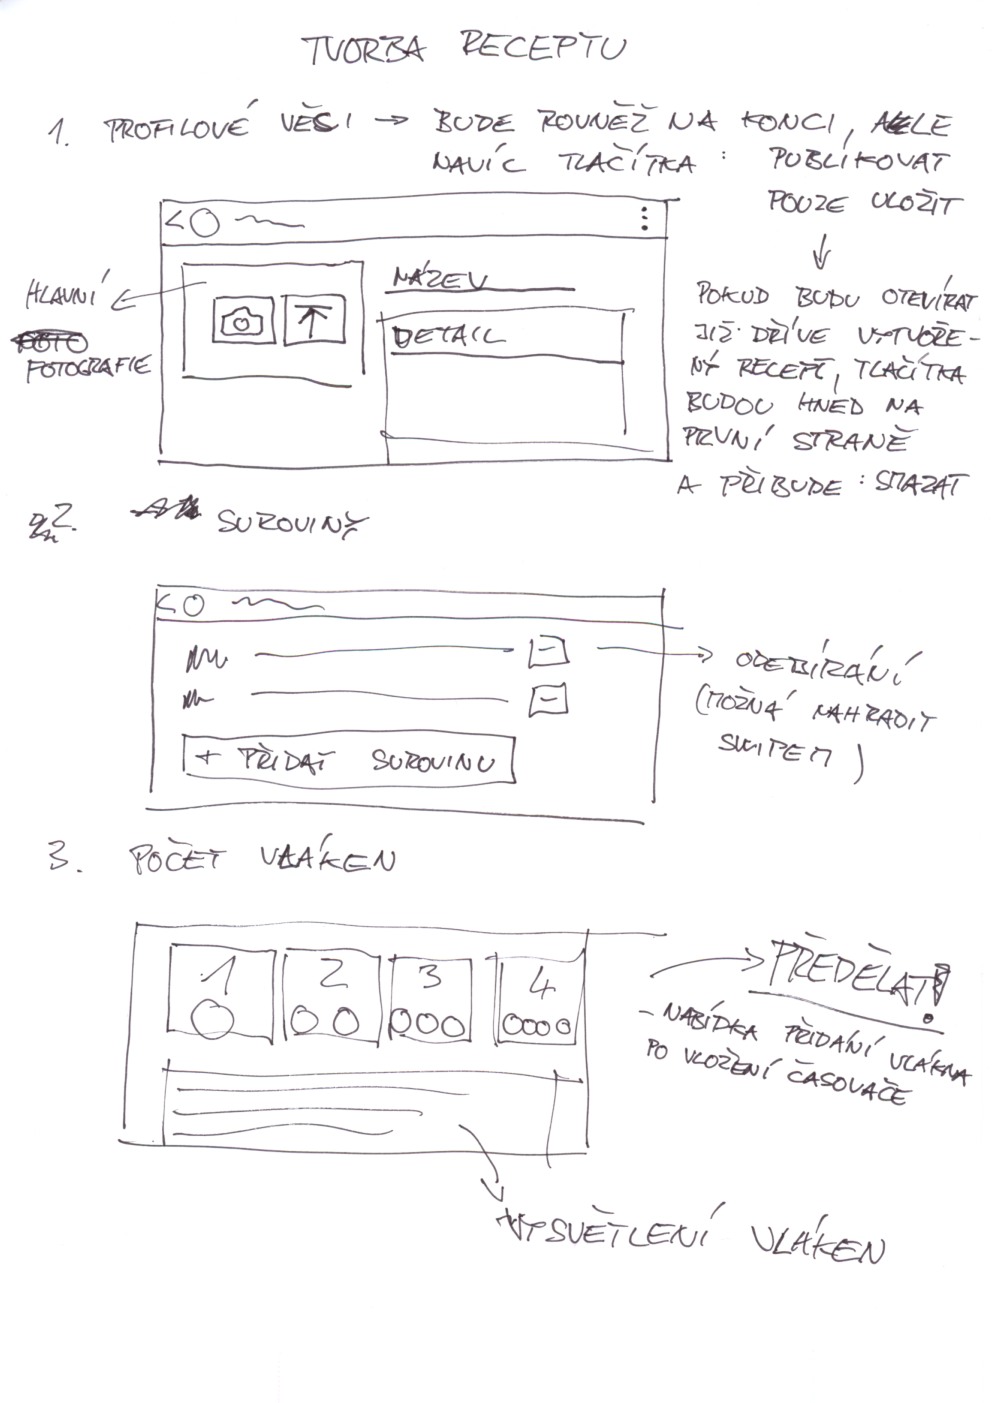 TVORBA RECEPTU
1. PROFILOVÉ VĚCI → BUDE ROVNĚŽ NA KONCI, ALE
NAVÍC TLAČÍTKA : PUBLIKOVAT
POUZE ULOŽIT
HLAVNÍ
FOTO
FOTOGRAFIE
NÁZEV
DETAIL
POKUD BUDU OTEVÍRAT
JIŽ DŘÍVE VYTVOŘE-
NÝ RECEPT, TLAČÍTKA
BUDOU HNED NA
PRVNÍ STRANĚ
A PŘIBUDE : SMAZAT
2. SUROVINY
+ PŘIDAT SUROVINU
ODEBÍRÁNÍ
(MOŽNÁ NAHRADIT
SWIPEM)
3. POČET VLÁKEN
1 2 3 4
PŘEDĚLAT!
- NABÍDKA PŘIDÁNÍ VLÁKNA
PO VLOŽENÍ ČASOVAČE
VYSVĚTLENÍ VLÁKEN